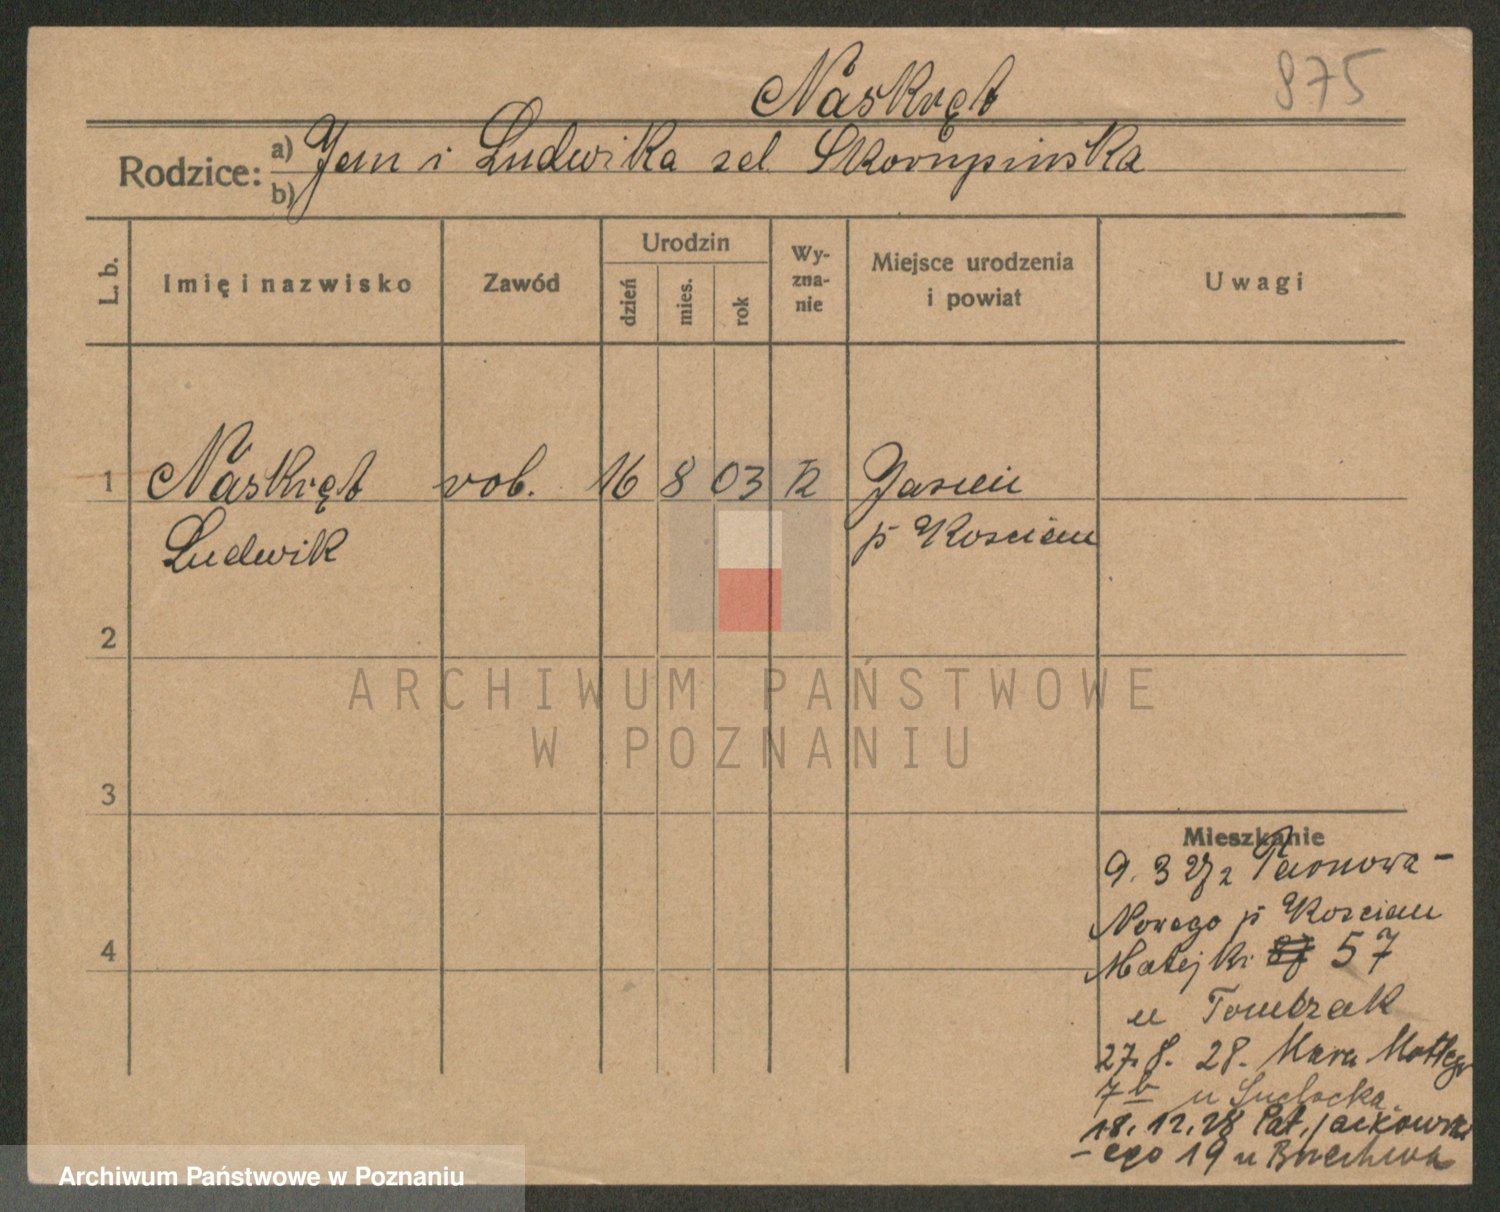 Naskręt
975
Rodzice: a) Jan i Ludwika zd. Skorupinska
b)
L. b.
Imię i nazwisko
Zawód
Urodzin
dzień
mies.
rok
Wy-
zna-
nie
Miejsce urodzenia
i powiat
Uwagi
1 Naskręt rob. 16 8 03 R Jasień
Ludwik p. Koscian
2
ARCHIWUM PAŃSTWOWE
W POZNANIU
3
Mieszkanie
9. 3 27 z
Nowego p. Koscian
Matejki 57
u Tomczak
27. 8. 28. Mottego
7b u Suchocka
18. 12. 28 Pat. Jackowski
-ego 19 u
4
Archiwum Państwowe w Poznaniu